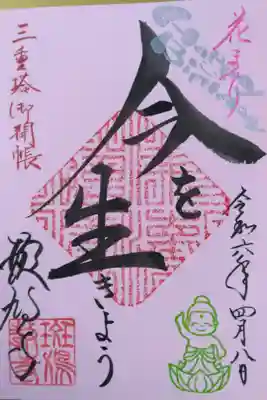 花まつり
令和六年四月八日
今を
生きよう
三重塔御開帳
斑鳩寺